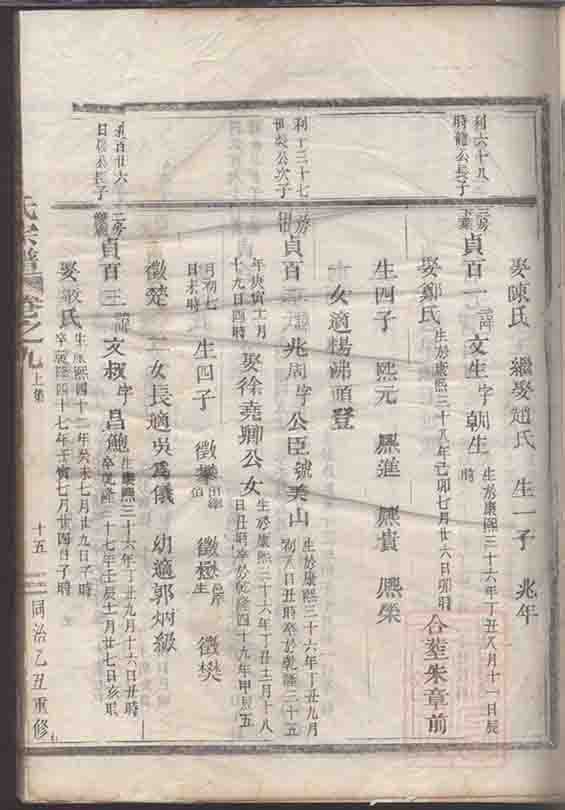 娶陳氏 繼娶趙氏 生一子 兆年
利六十八
時龍公長子
二房
貞百一 諱文生字朝生 生於康熙三十六年丁丑八月十一日辰
時
娶鄭氏 生於康熙三十八年己卯七月廿六日卯時 合塟朱章前
生四子 熙元 熙進 熙貴 熙榮
女適楊佛頭登
利丁三十七
世榮公次子
二房
貞百二 諱兆周字公臣號美山 生於康熙三十六年丁丑九月
初八日丑時卒於乾隆三十五
年庚寅十一月
十九日酉時 娶徐堯卿公女 生於康熙三十六年丁丑十二月十八
日丑時卒於乾隆四十九年甲辰五
月初七
日未時 生四子 徵懋 徵樊
徵楚 二女長適吳為儀 幼適郭炳級
百廿六
日 公長子
二房
貞百三 諱文叔字昌鮑 生康熙三十六年丁丑九月十六日丑時
卒乾隆三十七年壬辰十月廿七日亥時
娶 氏 生康熙四十二年癸未七月廿九日子時
卒乾隆四十七年壬寅七月廿四日子時
氏宗譜 卷之九 上集 十五 同治乙丑重修